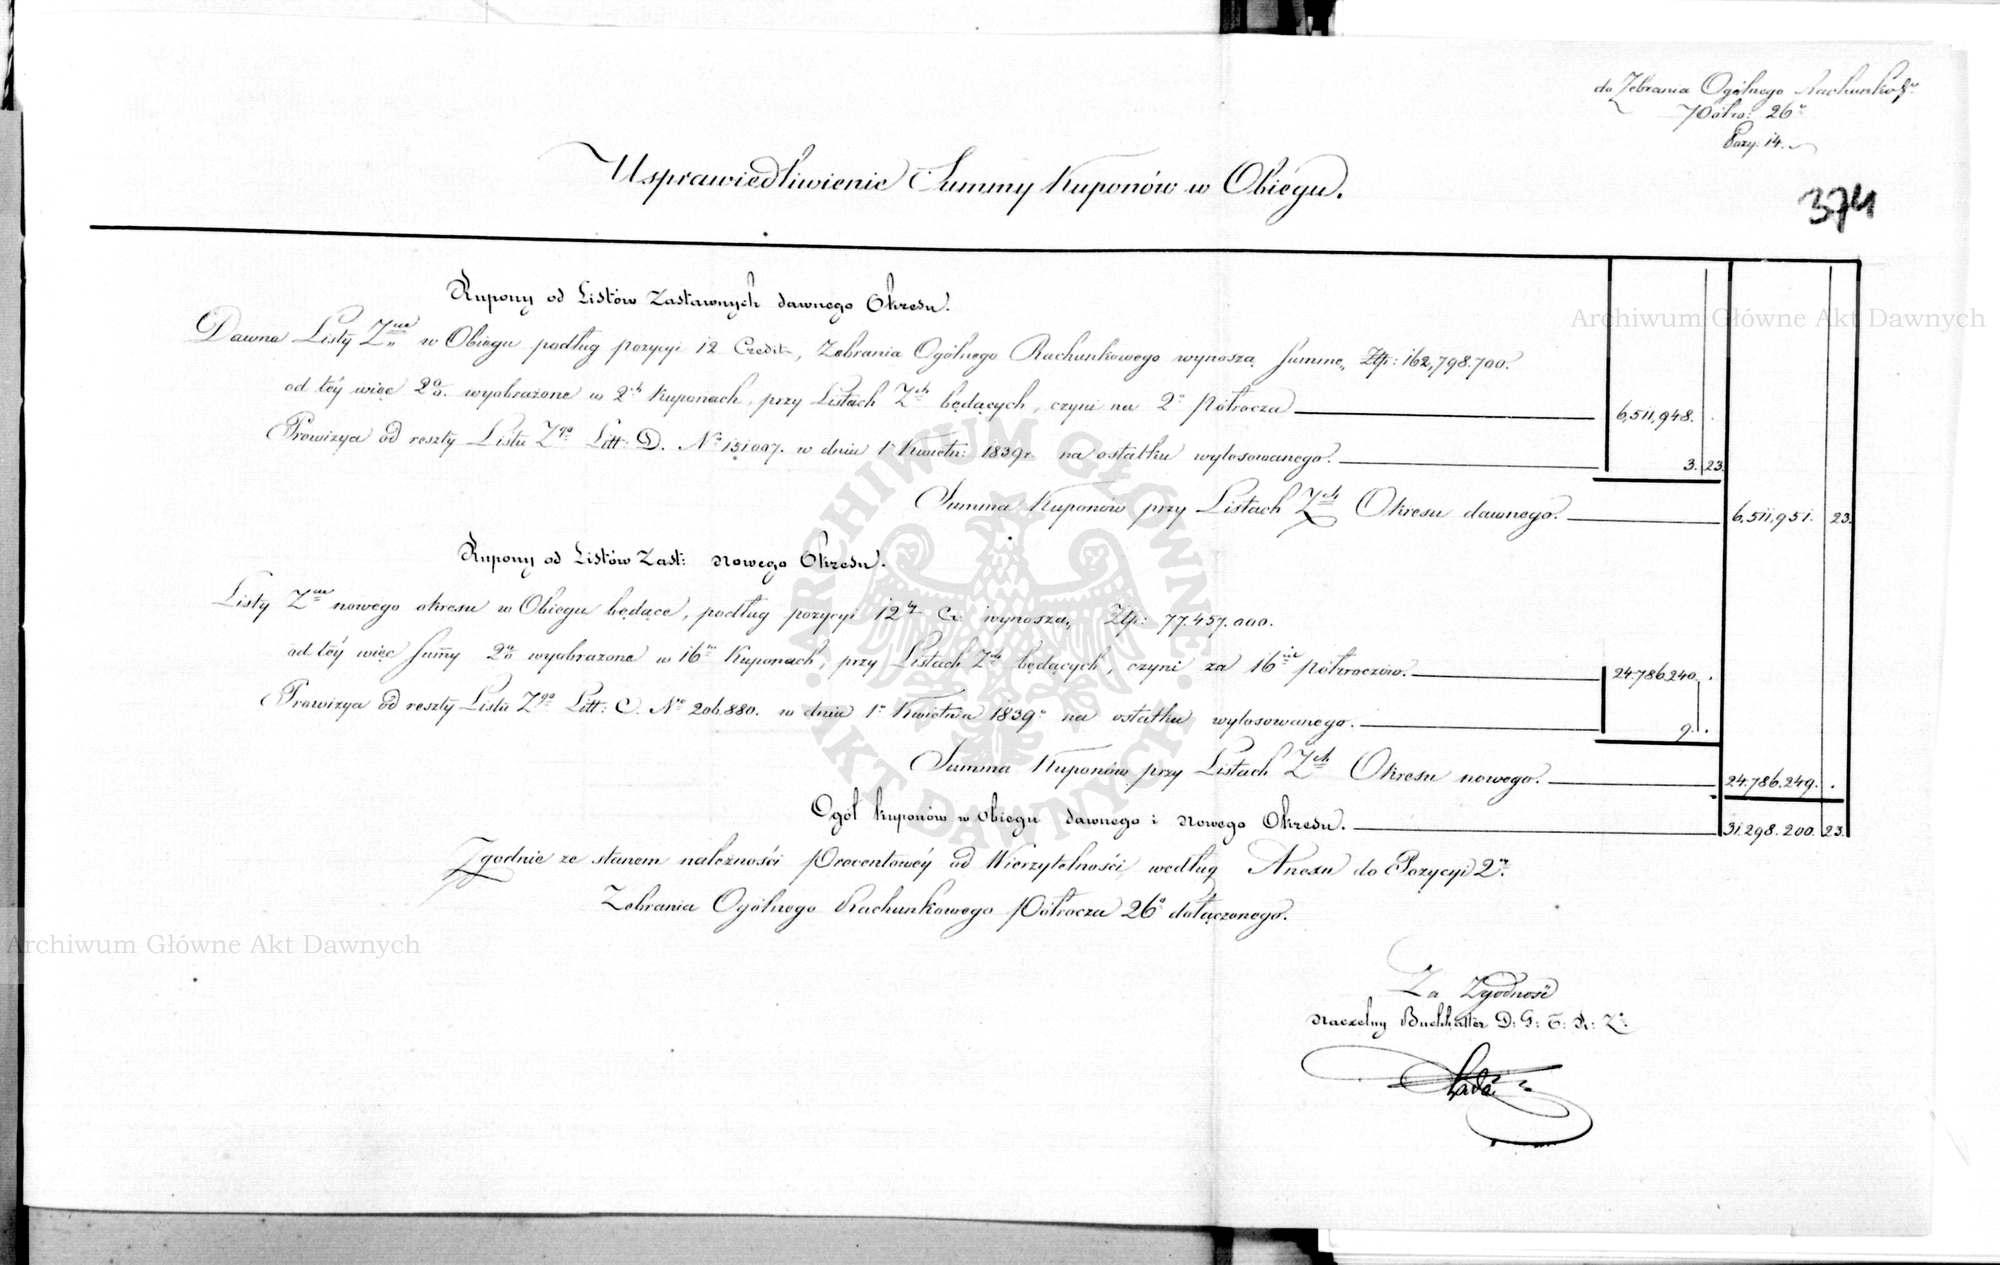 do Zebrania Ogólnego Rachunko
Półro: 26º
Pozy. 14.
Usprawiedliwienie Summy Kuponów w Obiegu.
374
Kupony od Listów Zastawnych dawnego Okresu.
Archiwum Główne Akt Dawnych
Dawne Listy Zne w Obiegu podług pozycyi 12 Credit, Zebrania Ogólnego Rachunkowego wynoszą Summę Złp: 162,798.700.
od téy więc 2% wyobrażone w 2ch Kuponach, przy Listach Zch będących, czyni na 2a Półrocza 6,511,948. .
Prowizya od reszty Listu Zgo Litt: D. Nº 151007. w dniu 1º Kwietn: 1839r. na ostatku wylosowanego. 3. 23.
Summa Kuponów przy Listach Zch Okresu dawnego. 6,511,951. 23.
Kupony od Listów Zast: Nowego Okresu.
Listy Zne nowego okresu w Obiegu będące, podług pozycyi 12ty Cr. wynoszą Złp: 77.457.000.
od téy więc Summy 2% wyobrażone w 16tu Kuponach, przy Listach Zch będących, czyni za 16cie Półroczów. 24.786.240. .
Prowizya od reszty Listu Zgo Litt: C. Nº 206.880. w dniu 1º Kwietnia 1839º na ostatku wylosowanego. 9. .
Summa Kuponów przy Listach Zch Okresu nowego. 24.786.249. .
Ogół kuponów w obiegu dawnego i Nowego Okresu. 31.298.200. 23.
Zgodnie ze stanem należności Procentowéy od Wierzytelności według Anexu do Pozycyi 2éy
Zebrania Ogólnego Rachunkowego Półrocza 26º dołączonego.
Archiwum Główne Akt Dawnych
Za Zgodność
Naczelny Buchhalter D: G: T: K: Zº
ARCHIWUM GŁÓWNE
AKT DAWNYCH